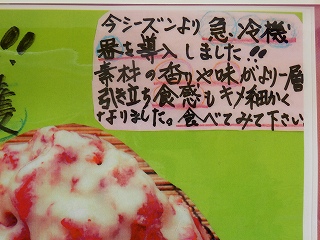 今シーズンより急冷機
器を導入しました!!
素材の香りや味がより一層
引き立ち食感もキメ細かく
なりました。食べてみて下さい